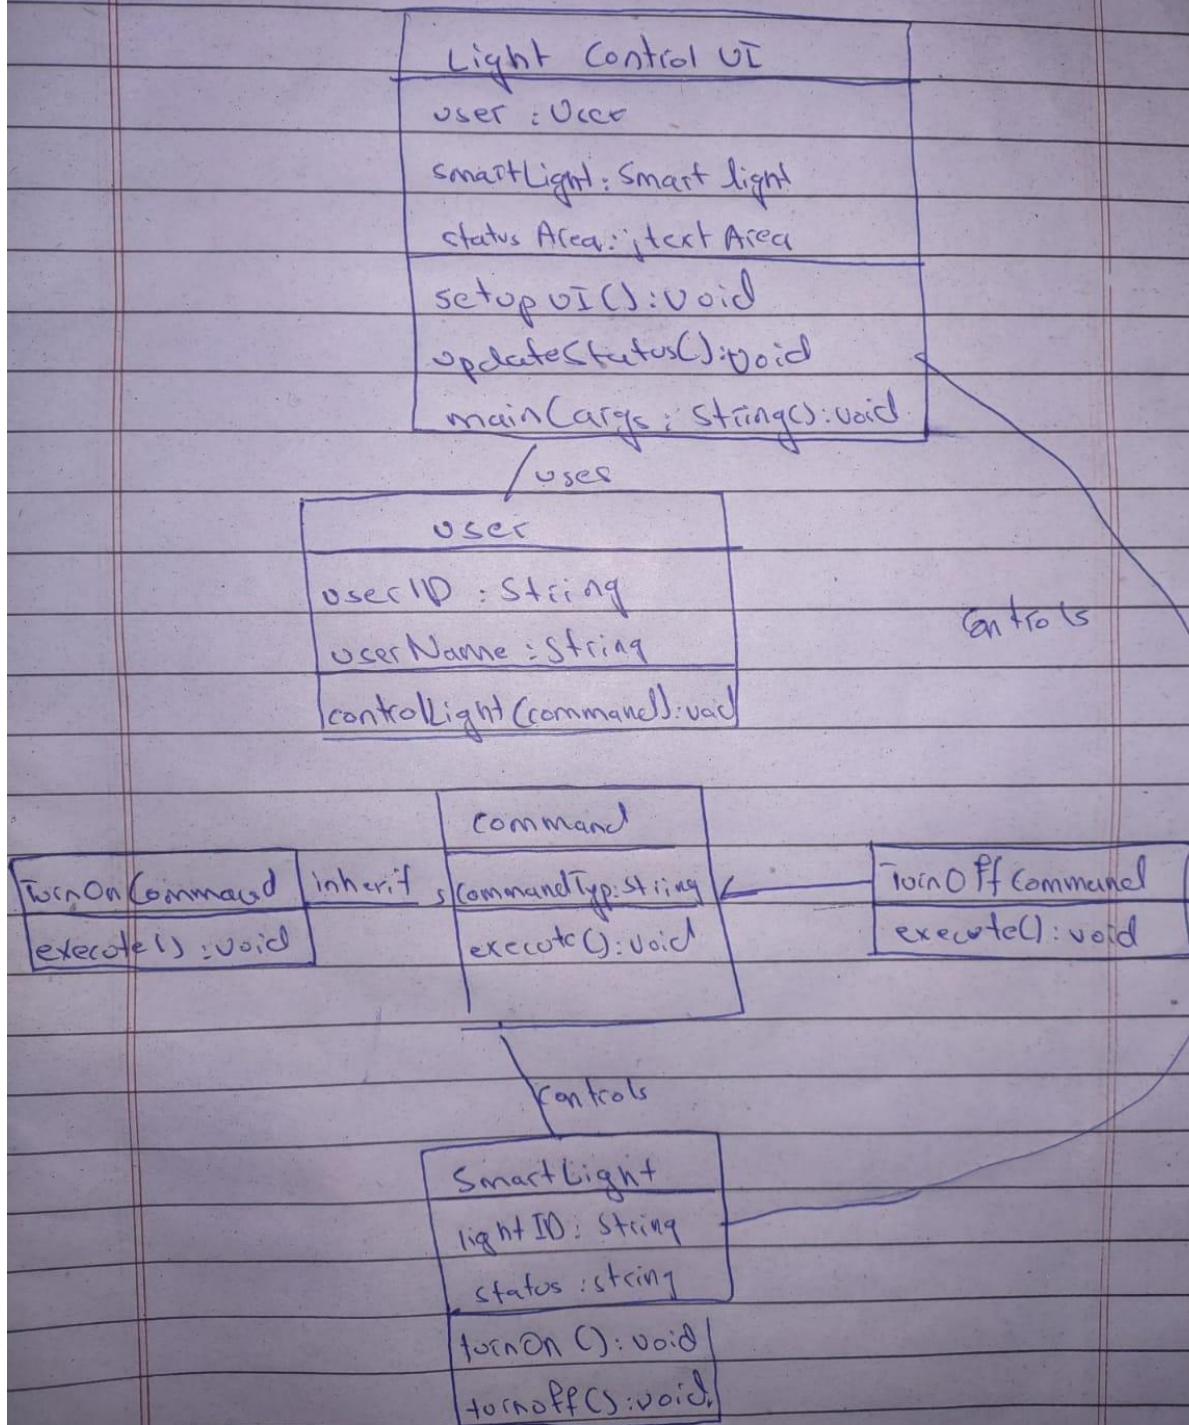 Light Control UI
user : User
smartLight: Smart light
status Area: jtext Area
setup UI(): void
updateStatus(): void
main(args: String(): void
uses
user
userID : String
userName : String
controlLight (command): void
Controls
Command
TurnOn Command
inherit s
CommandTyp: String
TurnOff Command
execute() : void
execute(): void
execute(): void
Controls
Smart Light
light ID: String
status : string
turnOn (): void
turnoff(): void